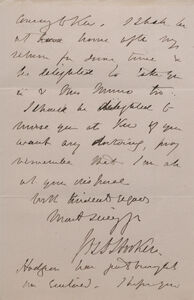 coming to Kew. I shall be
at home after my
return for some time &
be delighted to take you
in & Mrs Munro too.
I should be delighted to
nurse you at Kew if you
want any doctoring, pray
remember that I am ale
at your disposal
With kindest regards
Most sincerely yrs
Jos D Hooker.
Hodgson has just brought
in